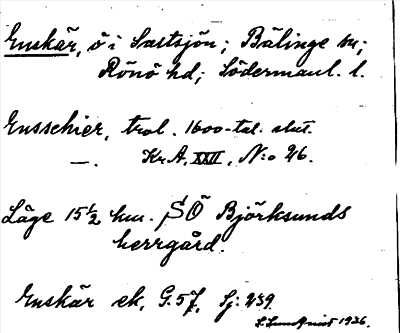 Enskär, ö i Saltsjön; Bälinge sn;
Rönö hd; Södermanl. l.
Ensschier, trol. 1600-tal. slut.
—. Kr.A. XXII, N:o 26.
Läge 15½ km. SÖ Björksunds
herrgård.
Enskär ek. G.57, Sj: 239
S. Lundqvist 1926.